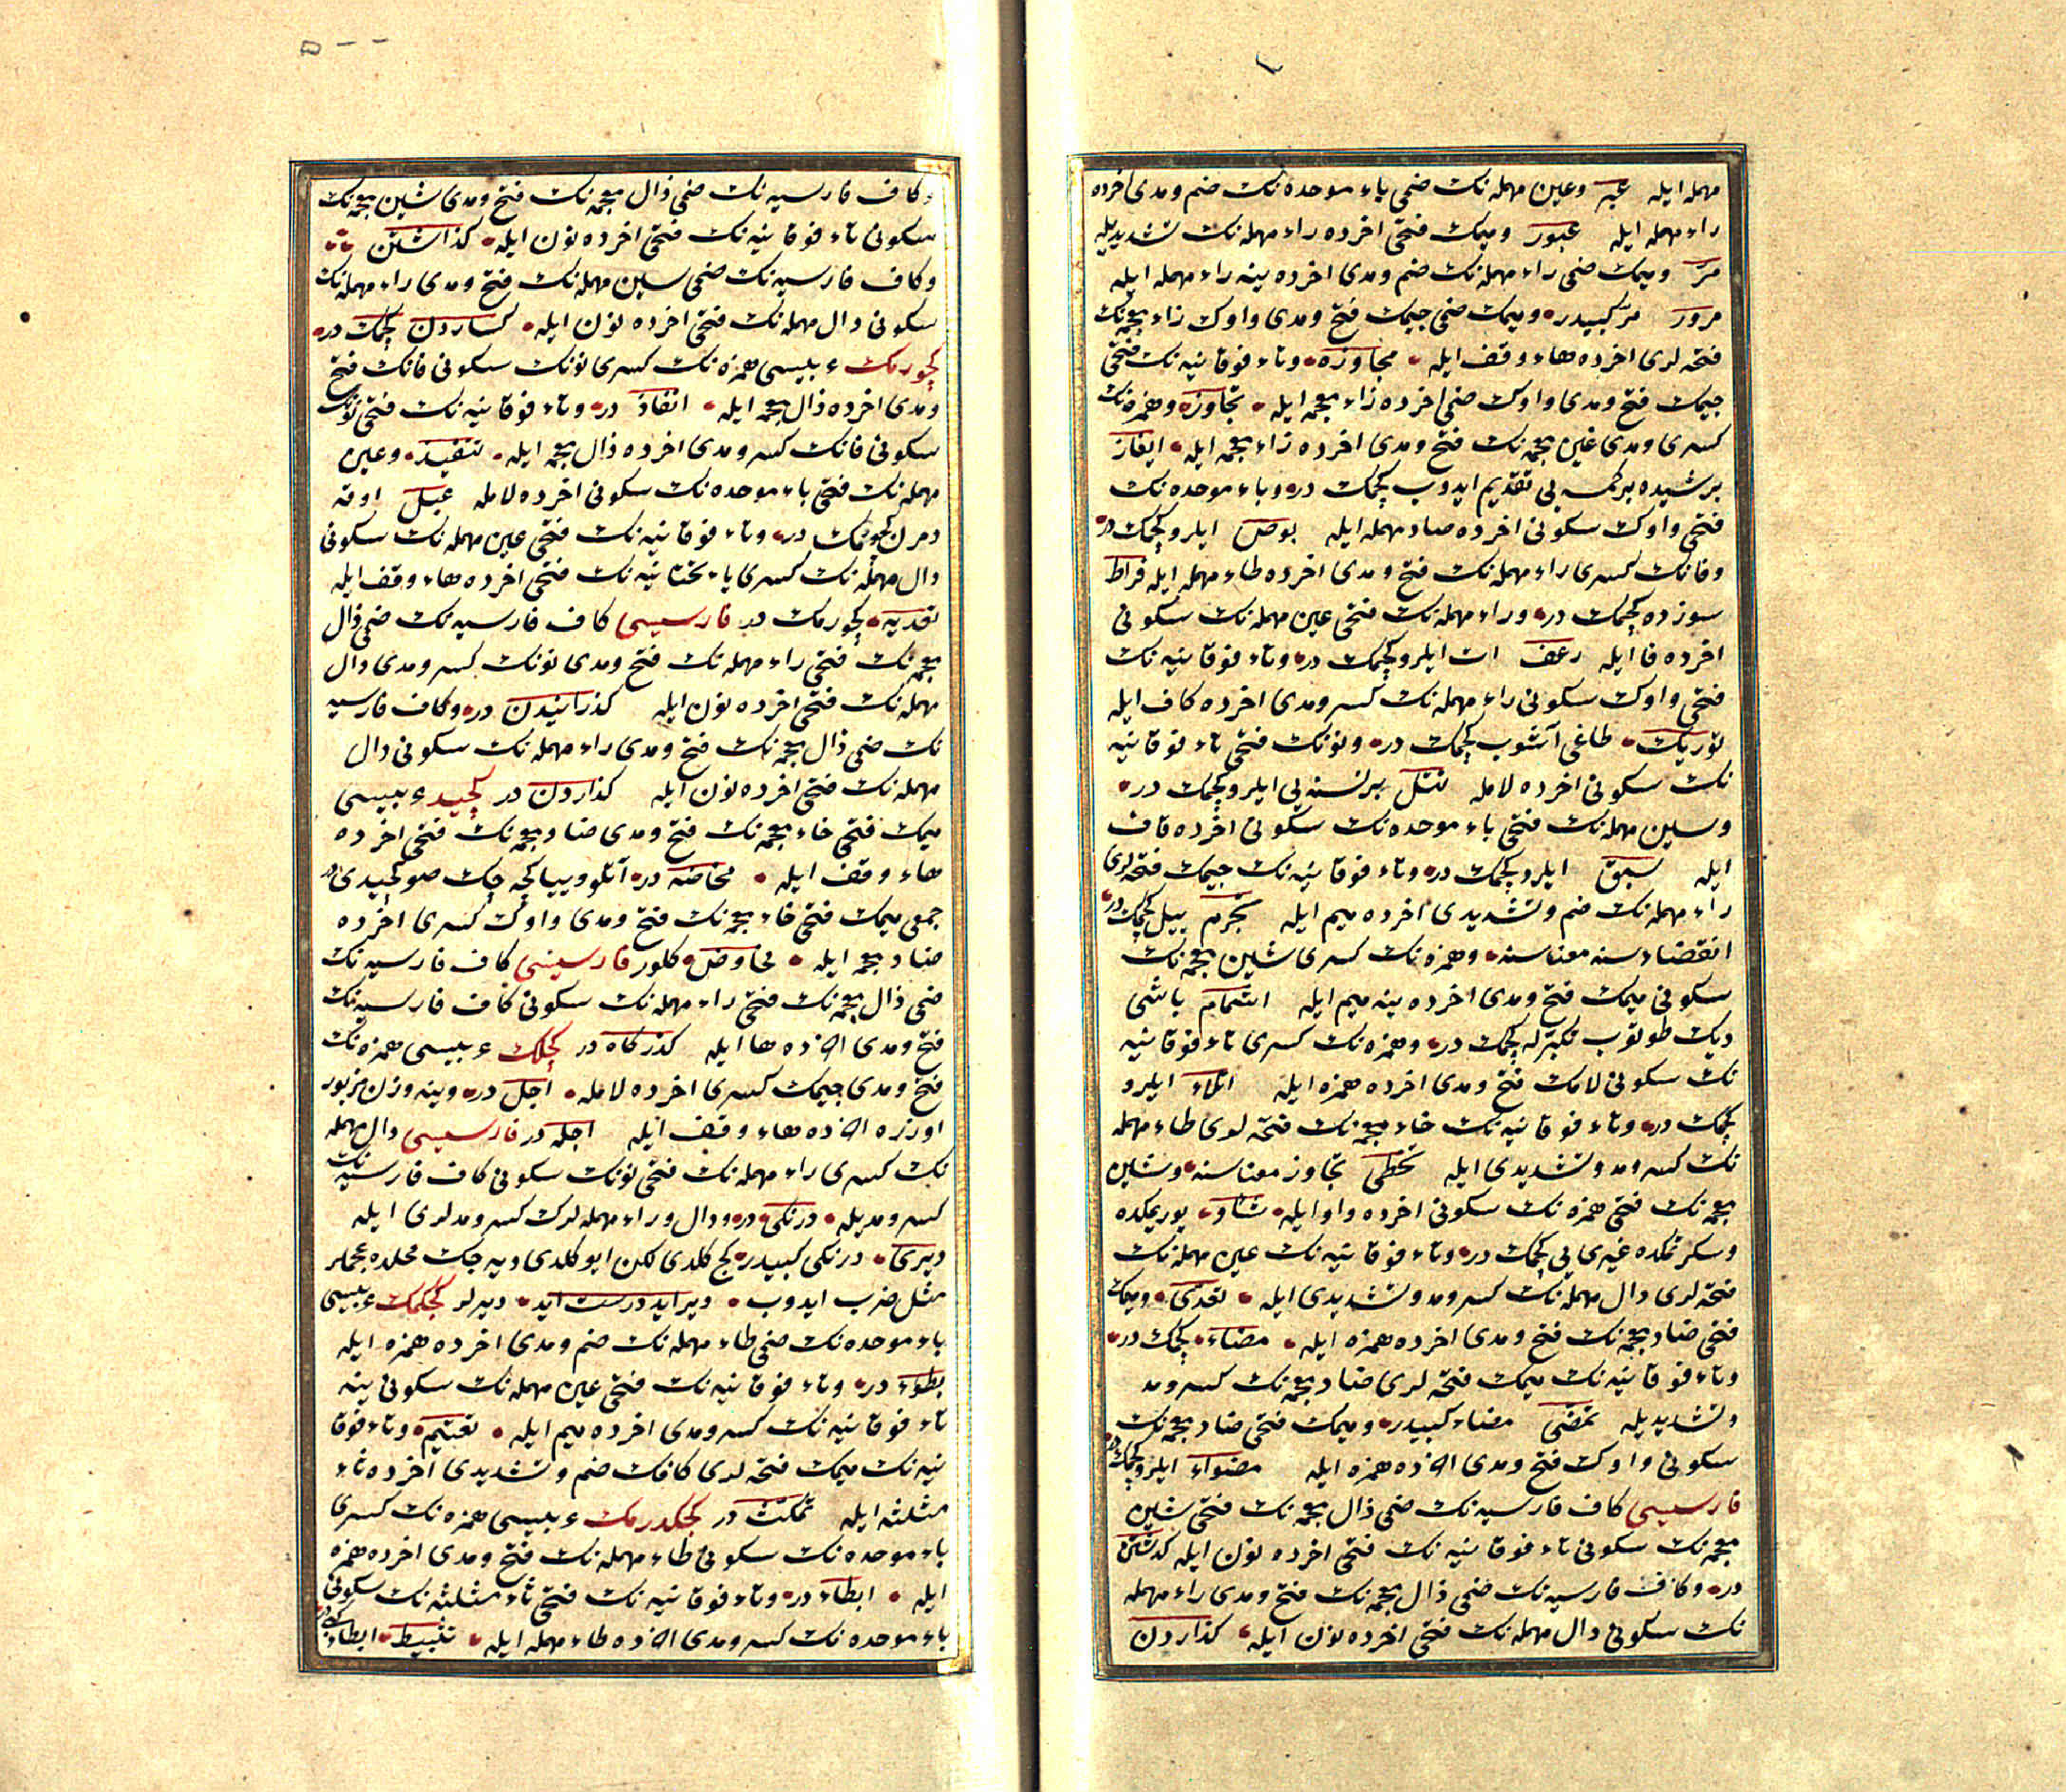 مهمله ایله عبر وعین مهمله نك ضمی باء موحده نك ضم ومدی اخرده
راء مهمله ایله عبور ومیمك فتحی اخرده راء مهمله نك تشدیدیله
مرّ ومیمك ضمی راء مهمله نك ضم ومدی اخرده ینه راء مهمله ایله
مرور مرّ كبیدر ومیمك ضمی جیمك فتح ومدی واوك زاء معجمه نك
فتحه لری اخرده هاء وقف ایله مجاوزه وتاء فوقانیه نك فتحی
جیمك فتح ومدی واوك ضمی اخرده زاء معجمه ایله تجاوز وهمزه نك
كسری ومدی غین معجمه نك فتح ومدی اخرده زاء معجمه ایله ایغاز
برشیده بركمسه یی تقدیم ایدوب كچمك در وباء موحده نك
فتحی واوك سكونی اخرده صاد مهمله ایله بوص ایلرو كچمك در
وفانك كسری راء مهمله نك فتح ومدی اخرده طاء مهمله ایله فراط
سوزده كچمك در وراء مهمله نك فتحی عین مهمله نك سكونی
اخرده فا ایله رعف ات ایلرو كچمك در وتاء فوقانیه نك
فتحی واوك سكونی راء مهمله نك كسر ومدی اخرده كاف ایله
توریك طاغی آشوب كچمك در ونونك فتحی تاء فوقانیه
نك سكونی اخرده لامله نتل برنسنه یی ایلرو كچمك در
وسین مهمله نك فتحی باء موحده نك سكونی اخرده قاف
ایله سبق ایلرو كچمك در وتاء فوقانیه نك جیمك فتحه لری
راء مهمله نك ضم وتشدیدی اخرده میم ایله تجرّم ییل كچمك در
انقضاد سنه معناسنه وهمزه نك كسری شین معجمه نك
سكونی میمك فتح ومدی اخرده ینه میم ایله اشمام باشی
دیك طوتوب تكبرله كچمك در وهمزه نك كسری تاء فوقانیه
نك سكونی لامك فتح ومدی اخرده همزه ایله اتلاء ایلرو
كچمك در وتاء فوقانیه نك خاء معجمه نك فتحه لری طاء مهمله
نك كسر ومد وتشدیدی ایله تخطّی تجاوز معناسنه وشین
معجمه نك فتحی همزه نك سكونی اخرده واو ایله شاو یوریمكده
وسكرتمكده غیری یی كچمك در وتاء فوقانیه نك عین مهمله نك
فتحه لری دال مهمله نك كسر ومد وتشدیدی ایله تعدّی ومیمك
فتحی ضاد معجمه نك فتح ومدی اخرده همزه ایله مضاء كچمك در
وتاء فوقانیه نك میمك فتحه لری ضاد معجمه نك كسر ومد
وتشدیدیله تمضّی مضاء كبیدر ومیمك فتحی ضاد معجمه نك
سكونی واوك فتح ومدی اخرده همزه ایله مضواء ایلرو كچمك در
فارسیسی كاف فارسیه نك ضمی ذال معجمه نك فتحی شین
معجمه نك سكونی تاء فوقانیه نك فتحی اخرده نون ایله كذشتن
در وكاف فارسیه نك ضمی ذال معجمه نك فتح ومدی راء مهمله
نك سكونی دال مهمله نك فتحی اخرده نون ایله كذاردن
وكاف فارسیه نك ضمی ذال معجمه نك فتح ومدی شین معجمه نك
سكونی تاء فوقانیه نك فتحی اخرده نون ایله كذاشتن
وكاف فارسیه نك ضمی سین مهمله نك فتح ومدی راء مهمله نك
سكونی دال مهمله نك فتحی اخرده نون ایله كساردن كچمك در
كچورمك عربیسی همزه نك كسری نونك سكونی فانك فتح
ومدی اخرده ذال معجمه ایله انفاذ در وتاء فوقانیه نك فتحی نونك
سكونی فانك كسر ومدی اخرده ذال معجمه ایله تنفیذ وعین
مهمله نك فتحی باء موحده نك سكونی اخرده لامله عبل اوقه
دمرن كچورمك در وتاء فوقانیه نك فتحی عین مهمله نك سكونی
دال مهمله نك كسری یاء تحتانیه نك فتحی اخرده هاء وقف ایله
تعدیه كچورمك در فارسیسی كاف فارسیه نك ضمی ذال
معجمه نك فتحی راء مهمله نك فتح ومدی نونك كسر ومدی دال
مهمله نك فتحی اخرده نون ایله كذرانیدن در وكاف فارسیه
نك ضمی ذال معجمه نك فتح ومدی راء مهمله نك سكونی دال
مهمله نك فتحی اخرده نون ایله كذاردن در كچید عربیسی
میمك فتحی خاء معجمه نك فتح ومدی ضاد معجمه نك فتحی اخرده
هاء وقف ایله مخاضه در آتلو وییا كچه جك صو كچیدی
جمعی میمك فتحی خاء معجمه نك فتح ومدی واوك كسری اخرده
ضاد معجمه ایله مخاوض كلور فارسیسی كاف فارسیه نك
ضمی ذال معجمه نك فتحی راء مهمله نك سكونی كاف فارسیه نك
فتح ومدی اخرده ها ایله كذركاه در كچلك عربیسی همزه نك
فتح ومدی جیمك كسری اخرده لامله اجل در وینه وزن مزبور
اوزره اخرده هاء وقف ایله اجله در فارسیسی دال مهمله
نك كسری راء مهمله نك فتحی نونك سكونی كاف فارسیه نك
كسر ومدیله درنكی در ودال وراء مهمله لرك كسر ومدلری ایله
دیری درنكی كبیدر كج كلدی لكن ایو كلدی دیه جك محلده عجملر
مثل ضرب ایدوب دیر اید درست اید دیرلر كچكمك عربیسی
باء موحده نك ضمی طاء مهمله نك ضم ومدی اخرده همزه ایله
بطوء در وتاء فوقانیه نك فتحی عین مهمله نك سكونی ینه
تاء فوقانیه نك كسر ومدی اخرده میم ایله تعتیم وتاء فوقا
نیه نك میمك فتحه لری كافك ضم وتشدیدی اخرده ثاء
مثلثه ایله تمكّث در كچكدرمك عربیسی همزه نك كسری
باء موحده نك سكونی طاء مهمله نك فتح ومدی اخرده همزه
ایله ابطاء در وتاء فوقانیه نك فتحی ثاء مثلثه نك سكونی
باء موحده نك كسر ومدی اخرده طاء مهمله ایله تثبیط ابطاء